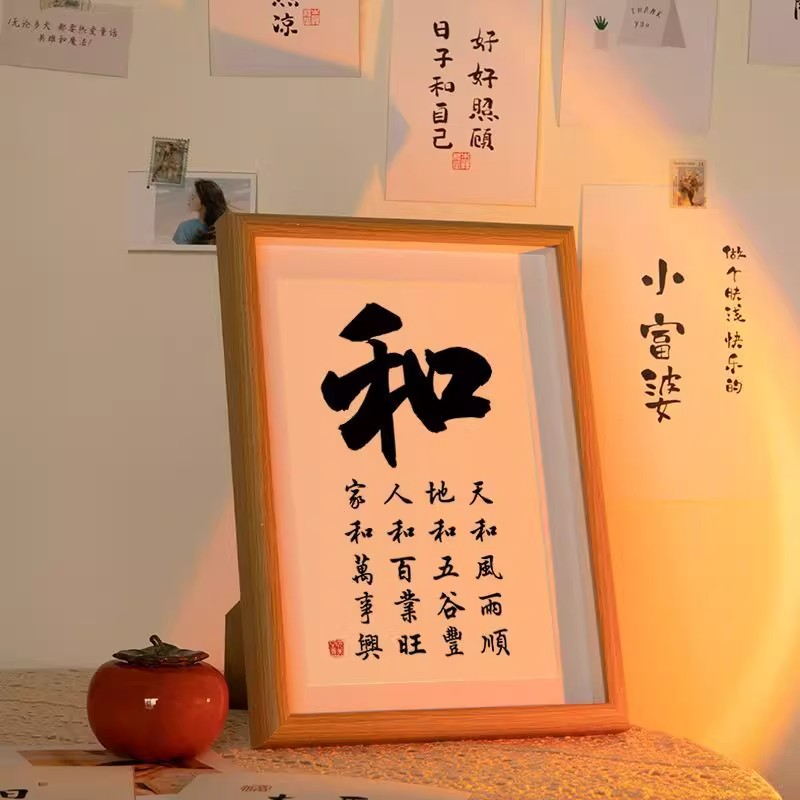 无论多大 都要热爱童话
英雄和魔法!
凉
好好照顾
日子和自己
THANK
you
做个肤浅快乐的
小富婆
和
天和風雨順
地和五谷豐
人和百業旺
家和萬事興